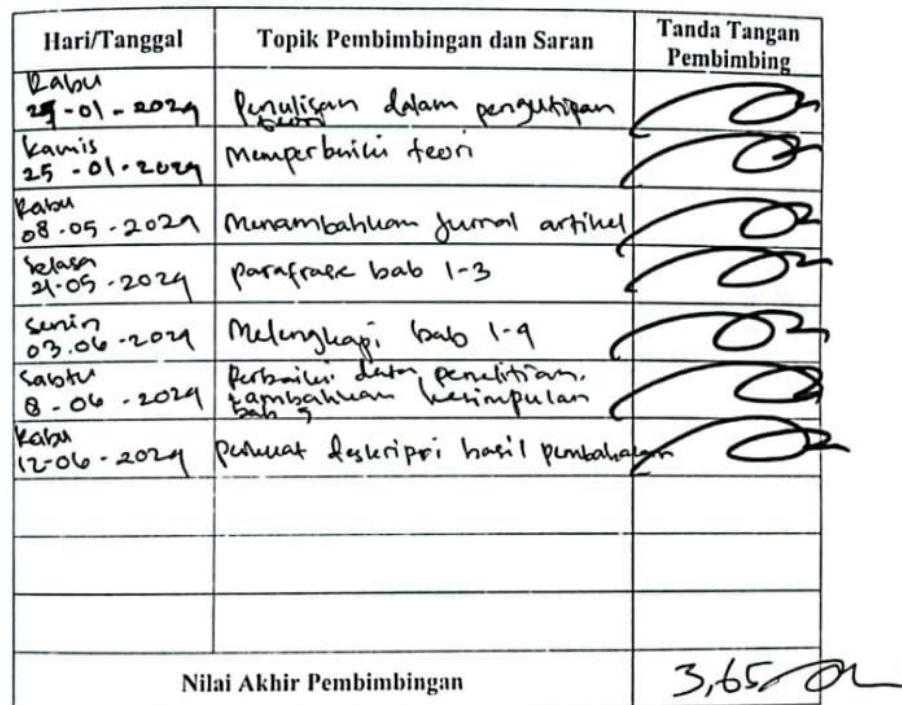 Hari/Tanggal Topik Pembimbingan dan Saran Tanda Tangan
Pembimbing
Rabu
24-01-2024 Penulisan dalam pengutipan
teori
Kamis
25-01-2024 Memperbaiki teori
Rabu
08-05-2024 Menambahkan Jurnal artikel
Selasa
21-05-2024 parafrase bab 1-3
Senin
03.06-2024 Melengkapi bab 1-4
Sabtu
8-06-2024 Perbaiki data penelitian.
tambahkan kesimpulan
bab 5
Rabu
12-06-2024 perkuat deskripsi hasil pembahasan
Nilai Akhir Pembimbingan 3,65